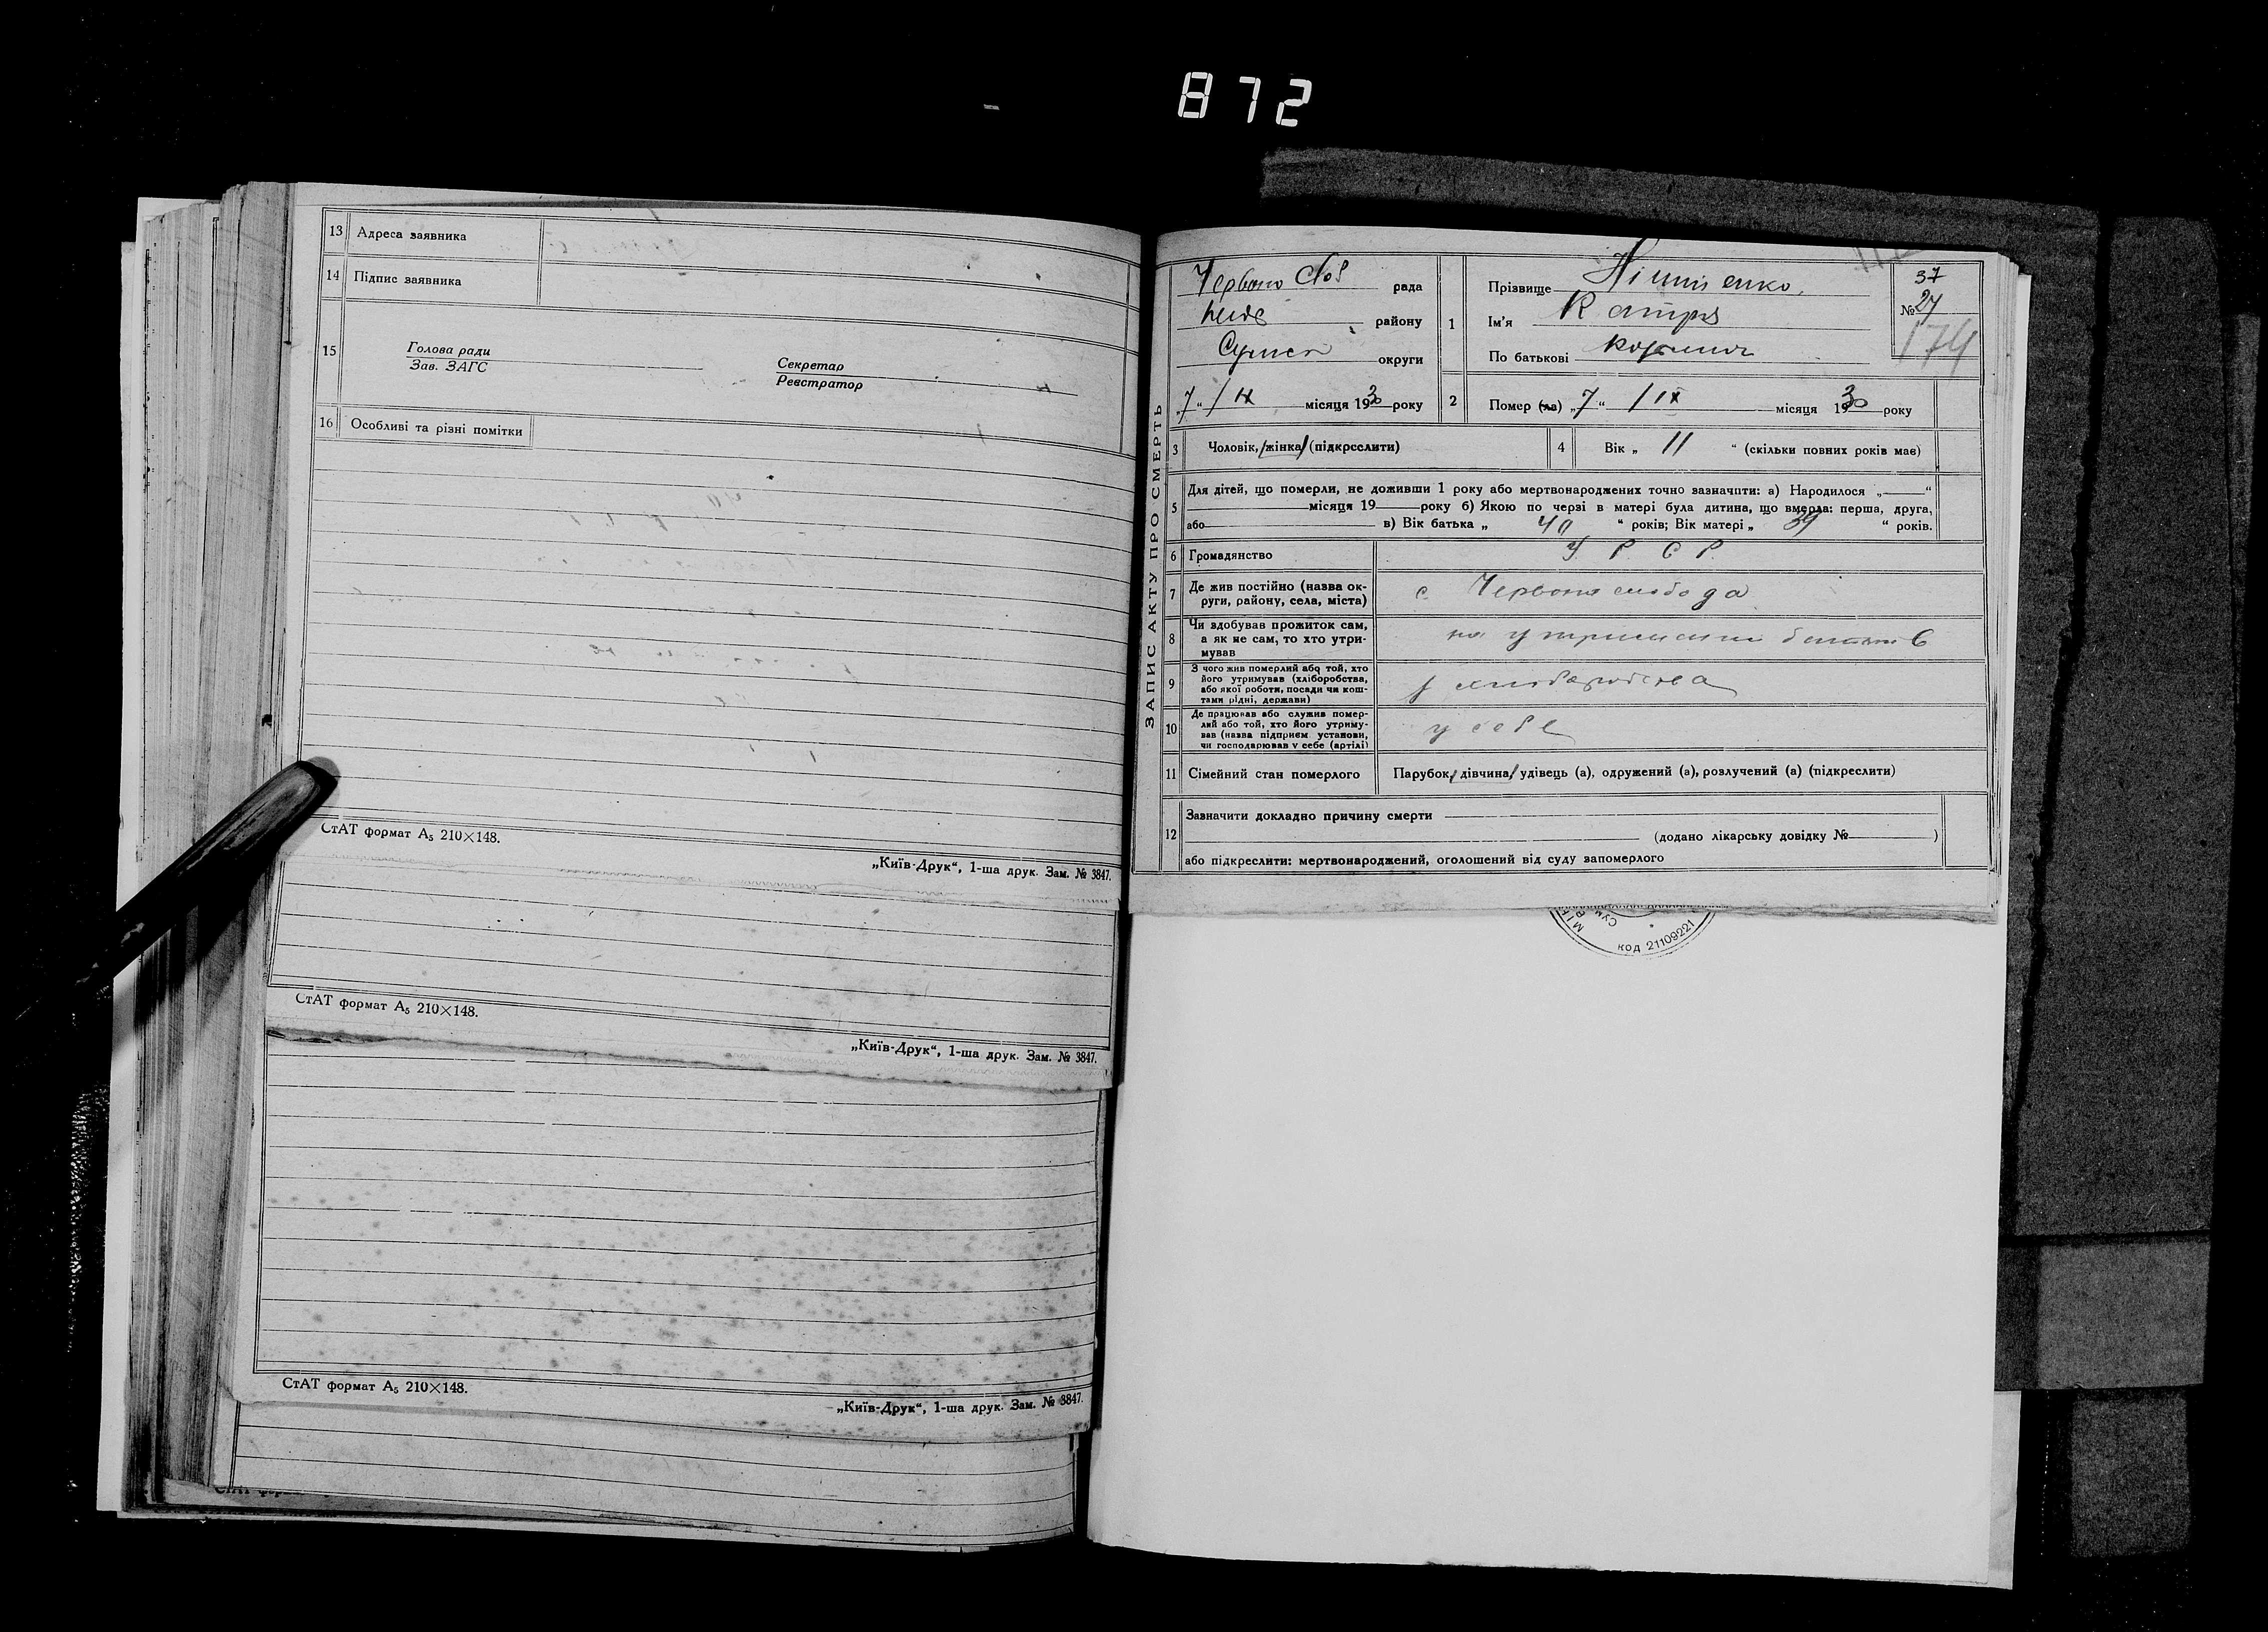 872
13 Адреса заявника
14 Підпис заявника
15 Голова ради
Зав. ЗАГС
Секретар
Реєстратор
16 Особливі та різні помітки
СтАТ формат А5 210×148.
„Київ-Друк“, 1-ша друк. Зам. № 3847.
СтАТ формат А5 210×148.
„Київ-Друк“, 1-ша друк. Зам. № 3847.
СтАТ формат А5 210×148.
„Київ-Друк“, 1-ша друк. Зам. № 3847.
ЗАПИС АКТУ ПРО СМЕРТЬ
Червоно Слоб рада
району
Сумск округи
„7“ / ІХ місяця 1930 року
1 Прізвище
Ім'я
По батькові
37
№ 27
174
2 Помер (ла) „7“ / ІХ місяця 1930 року
3 Чоловік, /жінка/ (підкреслити)
4 Вік „ 11 “ (скільки повних років має)
5 Для дітей, що померли, не доживши 1 року або мертвонароджених точно зазначити: а) Народилося „ “
місяця 19 року б) Якою по черзі в матері була дитина, що вмерла: перша, друга,
або в) Вік батька „ 40 “ років; Вік матері „ 39 “ років.
6 Громадянство У Р С Р
7 Де жив постійно (назва ок-
руги, району, села, міста) с Червона слобода
8 Чи здобував прожиток сам,
а як не сам, то хто утри-
мував на утриманні батьків
9 З чого жив померлий або той, хто
його утримував (хліборобства,
або якої роботи, посади чи кош-
тами рідні, держави) з хліборобства
10 Де працював або служив помер-
лий або той, хто його утриму-
вав (назва підприєм установи,
чи господарював у себе (артілі) у себе
11 Сімейний стан померлого Парубок, /дівчина/ удівець (а), одружений (а), розлучений (а) (підкреслити)
12 Зазначити докладно причину смерти
(додано лікарську довідку № )
або підкреслити: мертвонароджений, оголошений від суду запомерлого
код 21109221